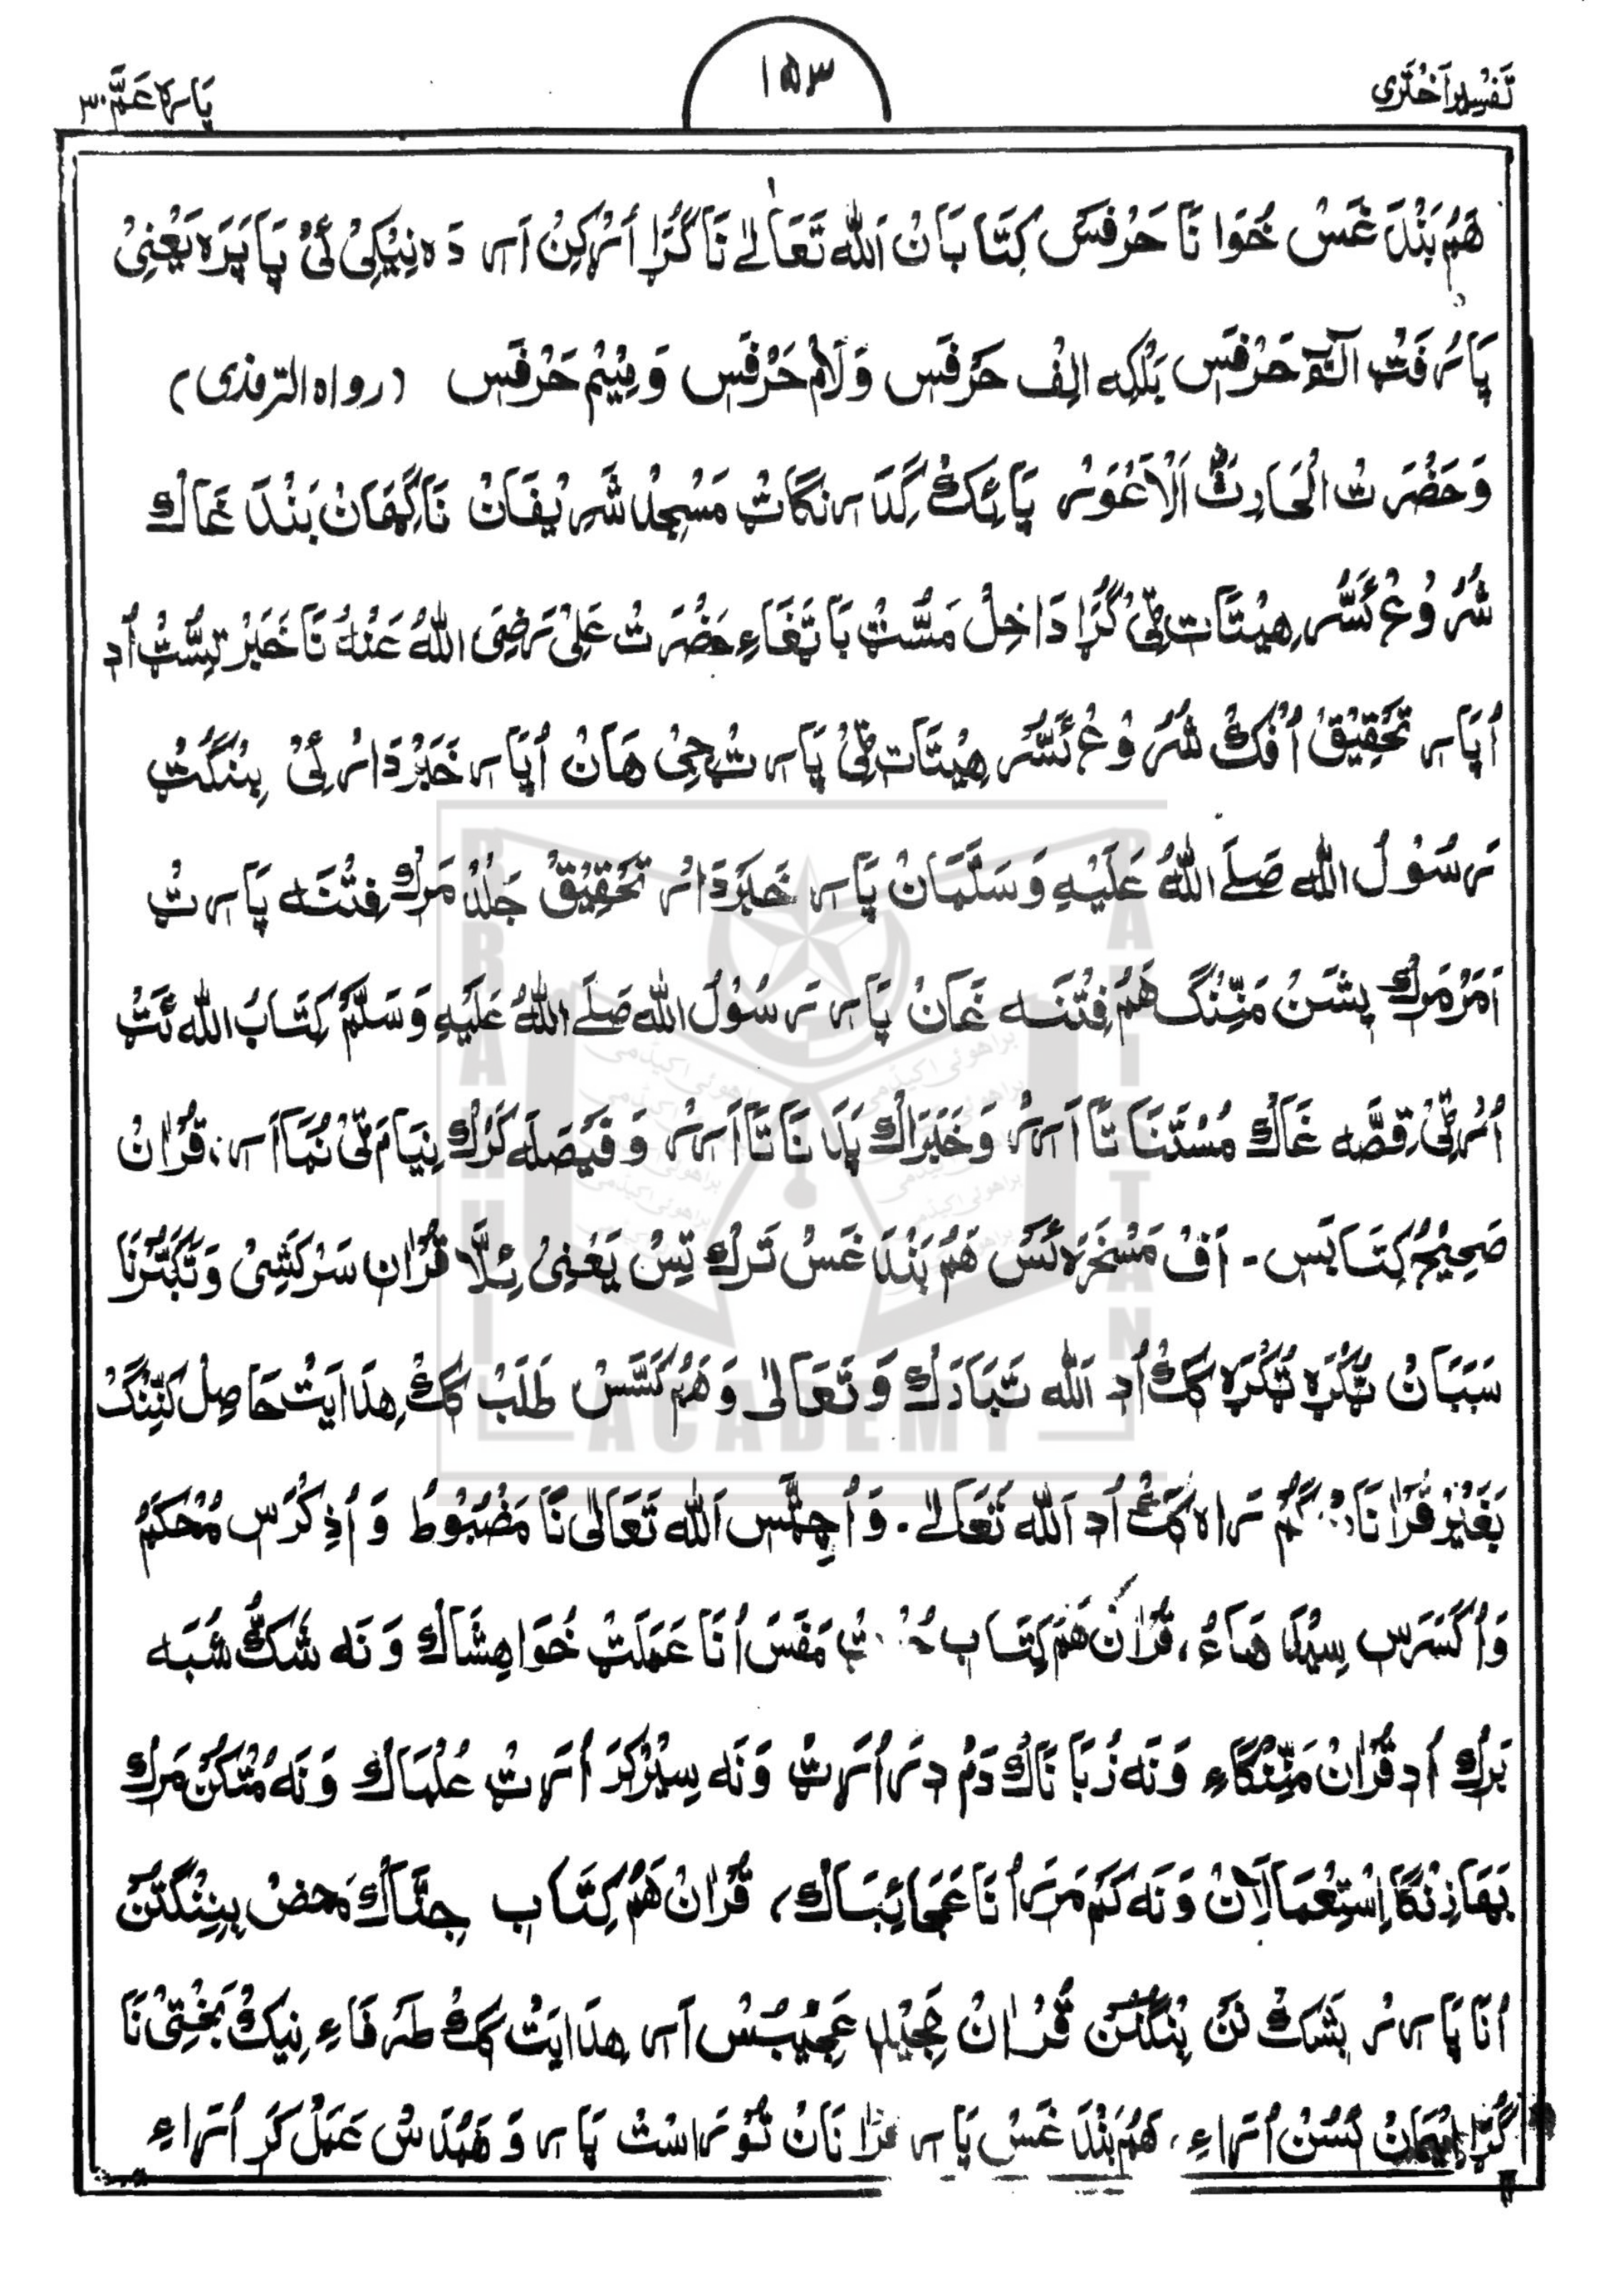 تَفْسِیْراَخْتَرِی
۱۵۳
پَارَہ عَمَّ ۳۰
ھَمْ بَنْدَ غَسْ خُوَا نَا حَرْفَسْ کِتَابَانْ اَللّٰہ تَعَالٰے نَا گُڑَا اُرْکِنْ اَرِ دَہ نِیْکِیْ ئَیْ پَا پَرَہ یَعْنِیْ
پَارَفَٹْ الٓمّٓ حَرْفَسِ بَلْکِہ اَلِفْ حَرْفَسِ وَلَامْ حَرْفَسِ وَمِیْمْ حَرْفَسِ (رواہ الترمذی)
وَحَضْرَتْ الْحَارِثْ اَلْاَعْوَرْ پَائِکْ گِدَرِنْگَاٹْ مَسْجِدْ شَرِیْفَانْ نَاگَہَانْ بَنْدَ غَاکْ
شُرُوْع ئَسُّر ھِیْتَاتِ ٹِیْ گُڑَا دَاخِلْ مَسُّٹْ بَا تَغَاءِ حَضْرَتْ عَلِیْ رَضِیَ اللّٰہُ عَنْہُ نَا خَبَرْ تِسُّٹْ اُدِ
اُپَارِ تَحْقِیْقْ اُفْکْ شُرُوْع ئَسُّر ھِیْتَاتِ ٹِیْ پَارِٹْ جِیْ ھَانْ اُپَارِ خَبَرْدَارْ ئِیْ بِنْگُٹْ
رَسُوْلُ اللّٰہِ صَلَے اللّٰہُ عَلَیْہِ وَسَلَّمَانْ پَارِ خَبَرْدَارْ تَحْقِیْقْ جَلْدْ مَرِکْ فِتْنَہ پَارِٹْ
اَمَرْ مَرِکْ پِشَنْ مَنِّنْگ ھَمْ فِتْنَہ غَانْ پَارِ رَسُوْلُ اللّٰہِ صَلَے اللّٰہُ عَلَیْہِ وَسَلَّمْ کِتَابُ اللّٰہ ئَٹْ
اُرْٹِیْ قِصَّہ غَاکْ مُسْتَنَا تَا اَرِرْ وَخَبَرَاکْ پَدَ نَا تَا اَرِرْ وَفَیْصَلَہ کَرُکْ نِیَامَ ٹِیْ نُمَا اَرِ، قُرْاٰنْ
صَحِیْحْ کِتَابَسِ۔ اَفْ مَسْخَرَہ ئَسْ ھَمْ بَنْدَ غَسْ تَرْکْ تِسْ یَعْنِیْ ئِلَّا قُرْاٰنِ سَرْکَشِیْ وَتَکَبُّرْنَا
سَبَبَانْ ٹُکْرَہ ٹُکْرَہ کَکْ اُدِ اَللّٰہ تَبَارَکَ وَتَعَالٰی وَھَمْ کَسَسْ طَلَبْ کَکْ ھِدَایَتْ حَاصِلْ کَنِّنْگ
بَغَیْرْ قُرْاٰنَا گُمْ رَاہ کَکْ اُدِ اَللّٰہ تَعَالٰے۔ وَاُ چِٹَّسِ اَللّٰہ تَعَالٰی نَا مَضْبُوْط وَ اُ ذِکْرَسِ مُحْکَمْ
وَاُ کَسَرَسِ سِیْدَا ھَاءُ، قُرْاٰنْ ھَمْ کِتَابِ مَفَسَ اُنَا عَمَلَتْ خُوَاھِشَاکْ وَنَہ شَکْ شُبَہ
بَرِکْ اُدِ قُرْاٰنْ مَنِّنْگَاءِ وَنَہ زُبَا نَاکْ دَمْ دِرَ اُرَٹْ وَنَہ سِیْرْکَرَ اُرَٹْ عُلَمَاکْ وَنَہ مُتْکُنْ مَرِکْ
بَھَازِنْگَا اِسْتِعْمَالَانْ وَنَہ کَمْ مَرَرَ اُنَا عَجَائِبَاکْ، قُرْاٰنْ ھَمْ کِتَابِ جِنَّاکْ مَحضْ بِنِنْگَتَنْ
اُنَا پَارِرْ بَشَکْ نَنْ بِنْگُنَنْ قُرْاٰنْ مَجِیْدِ عَجِیْبَسْ اَرِ ھِدَایَتْ کَکْ طَرَفَاءِ نِیْک بَخْتِیْ نَا
گُڑَا اِیْمَانْ ئَسُنْ اُرَاءِ، ھَمْ بَنْدَ غَسْ پَارِ قُرْاٰنَانْ تُوْ رَاسْتْ پَارِ وَھَمْدَسْ عَمَلْ کَرِ اُرَاءِ
BRAHUI
ACADEMY
PAKISTAN